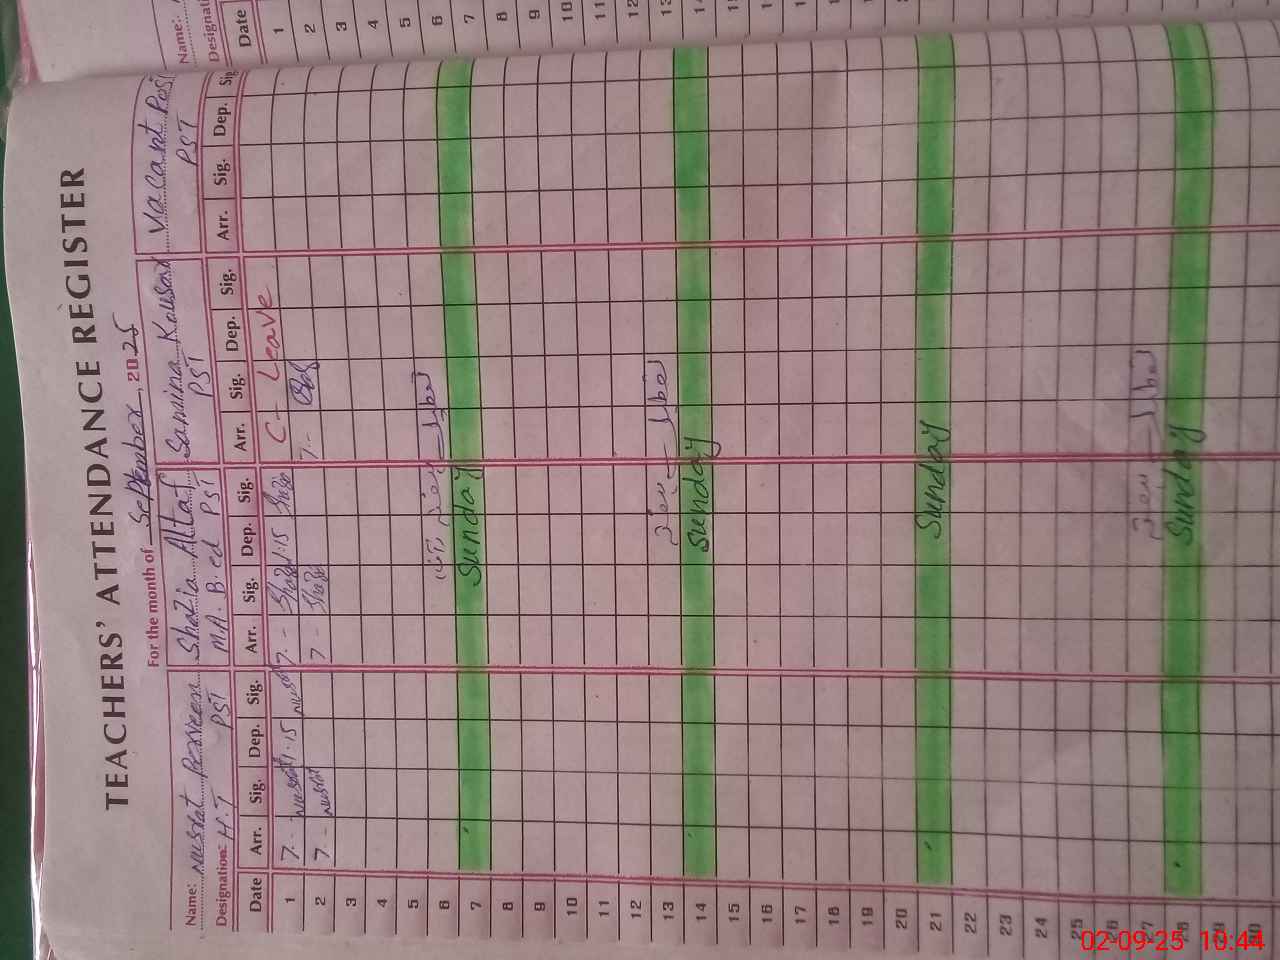 TEACHERS' ATTENDANCE REGISTER
For the month of September, 2025
Name: Nusrat Perveen Shazia Altaf Samina Kousar Vacant Post
Designation: H.T PST M.A. B.ed PST PST PST
Date Arr. Sig. Dep. Sig. Arr. Sig. Dep. Sig. Arr. Sig. Dep. Sig. Arr. Sig. Dep. Sig
1 7.- Nusrat 1.15 Nusrat 7.- Shazi 1:15 Shazi C- Leave
2 7.- Nusrat 7- Shazi 7.-
3
4
5
6
7 Sunday
8
9
10
11
12
13
14 Sunday
15
16
17
18
19
20
21 Sunday
22
23
24
25
26
27
28 Sunday
29
30
Name:
Date
1
2
3
4
5
6
7
8
9
10
11
12
13
14
02-09-25 10:44